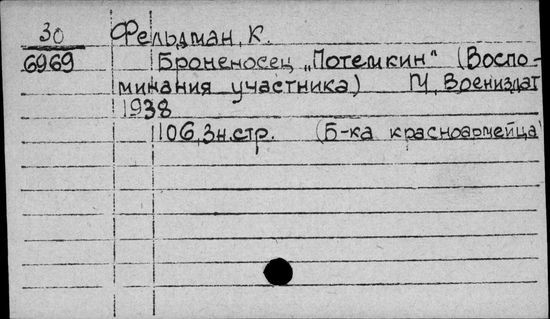 30 Фельдман, К.
6969 Броненосец „Потемкин“ (Воспо-
минания участника) М, Воениздат
1938
106, 3н.стр. (Б-ка красноармейца)